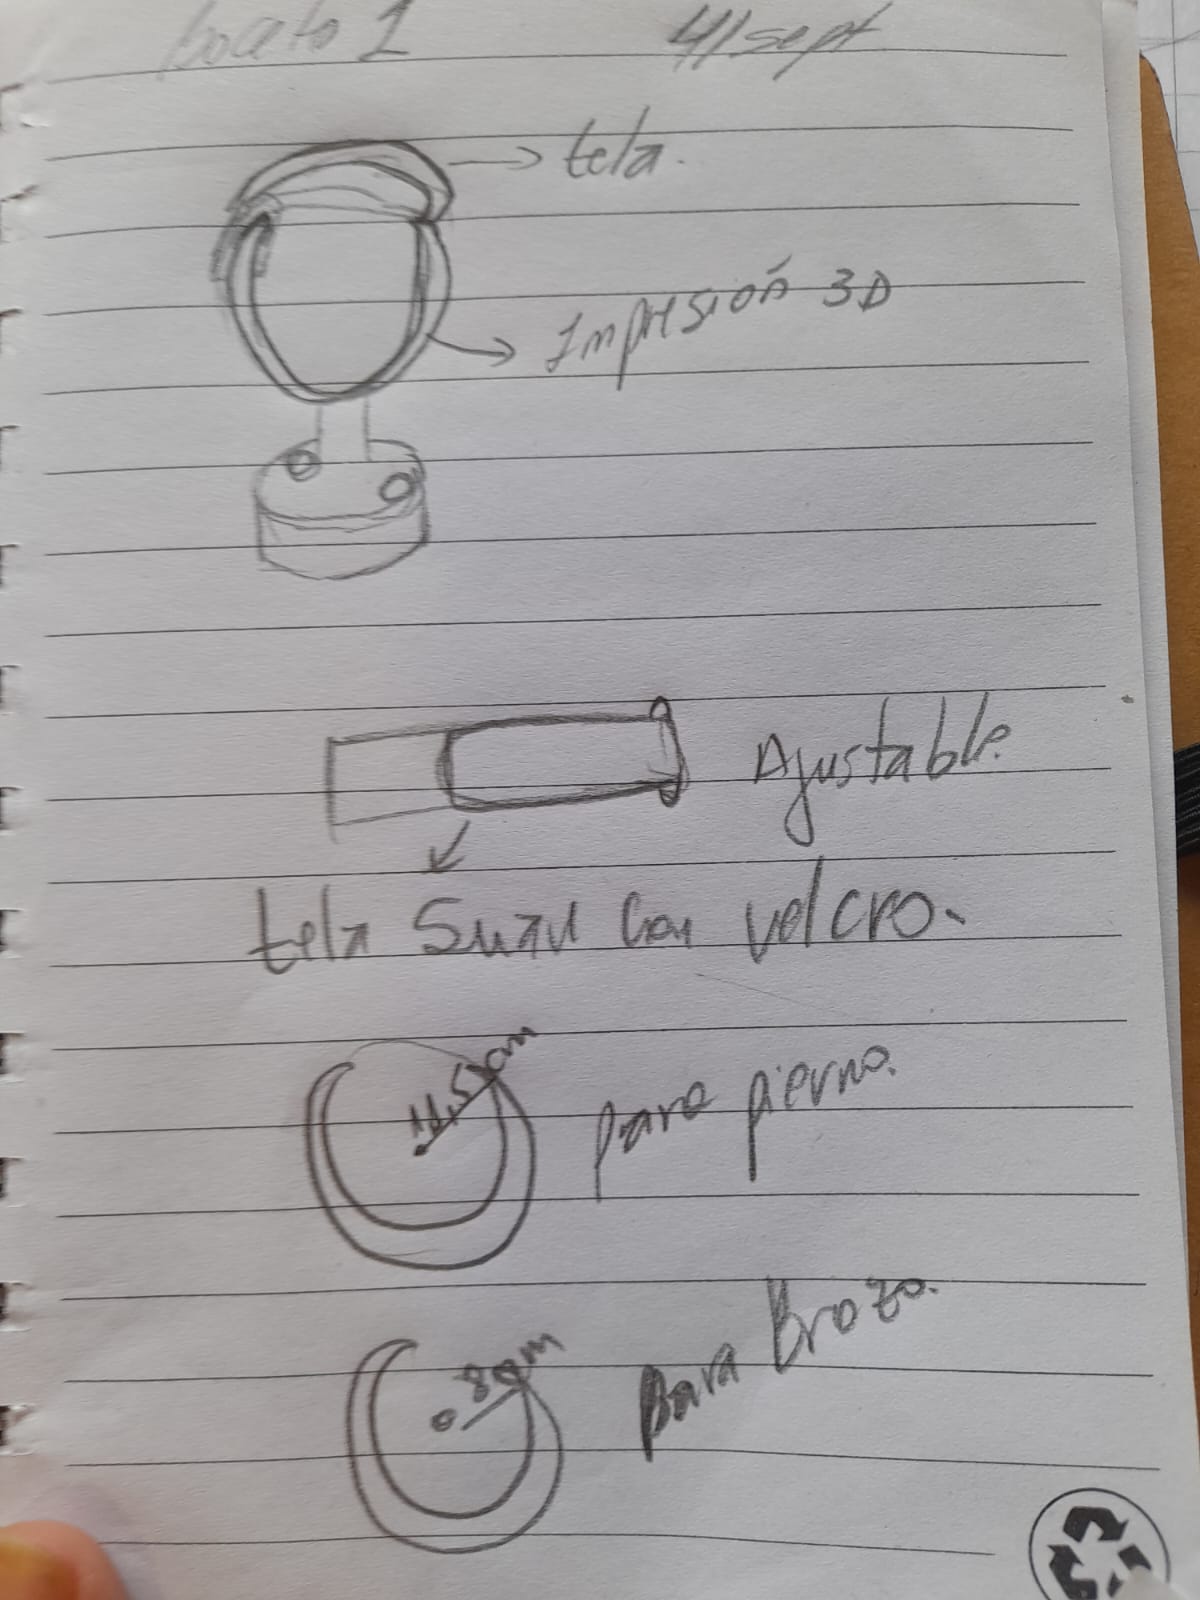 boceto 1 4/sept
→ tela.
Impresión 3D
Ajustable.
tela Suav con velcro.
11,5 cm
para pierna.
8 cm
Para Brazo.